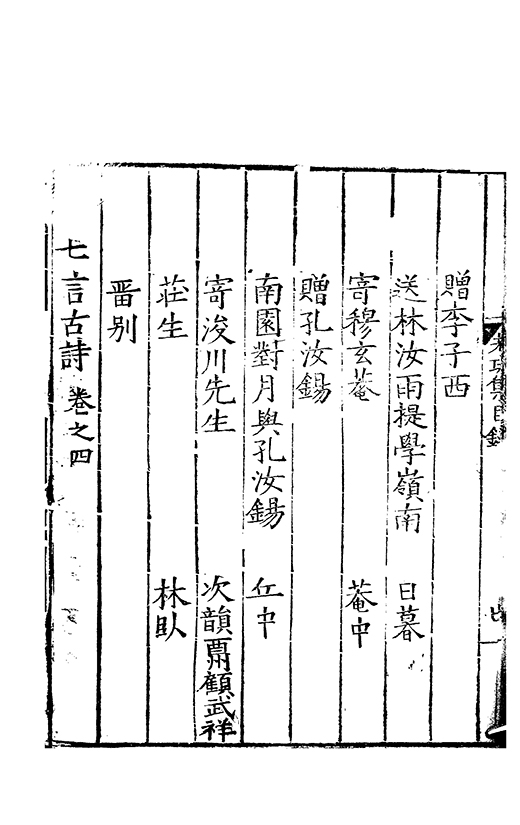 考功集目錄
贈李子西
送林汝雨提學嶺南　日暮
寄穆玄菴　菴中
贈孔汝錫
南園對月與孔汝錫　丘中
寄浚川先生　次韻酬顧武祥
莊生　林臥
畱别
七言古詩　卷之四